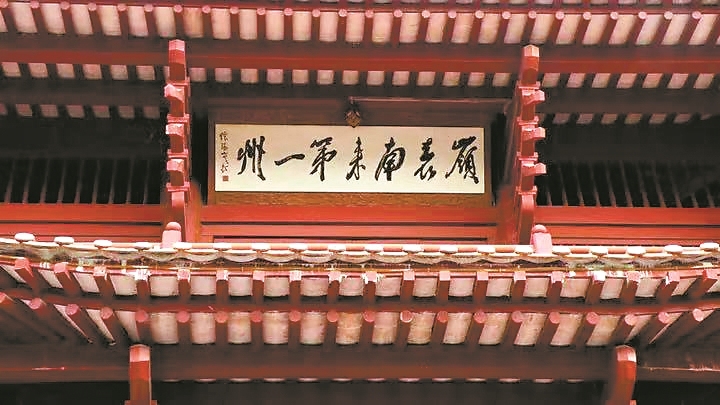 嶺表南来第一州